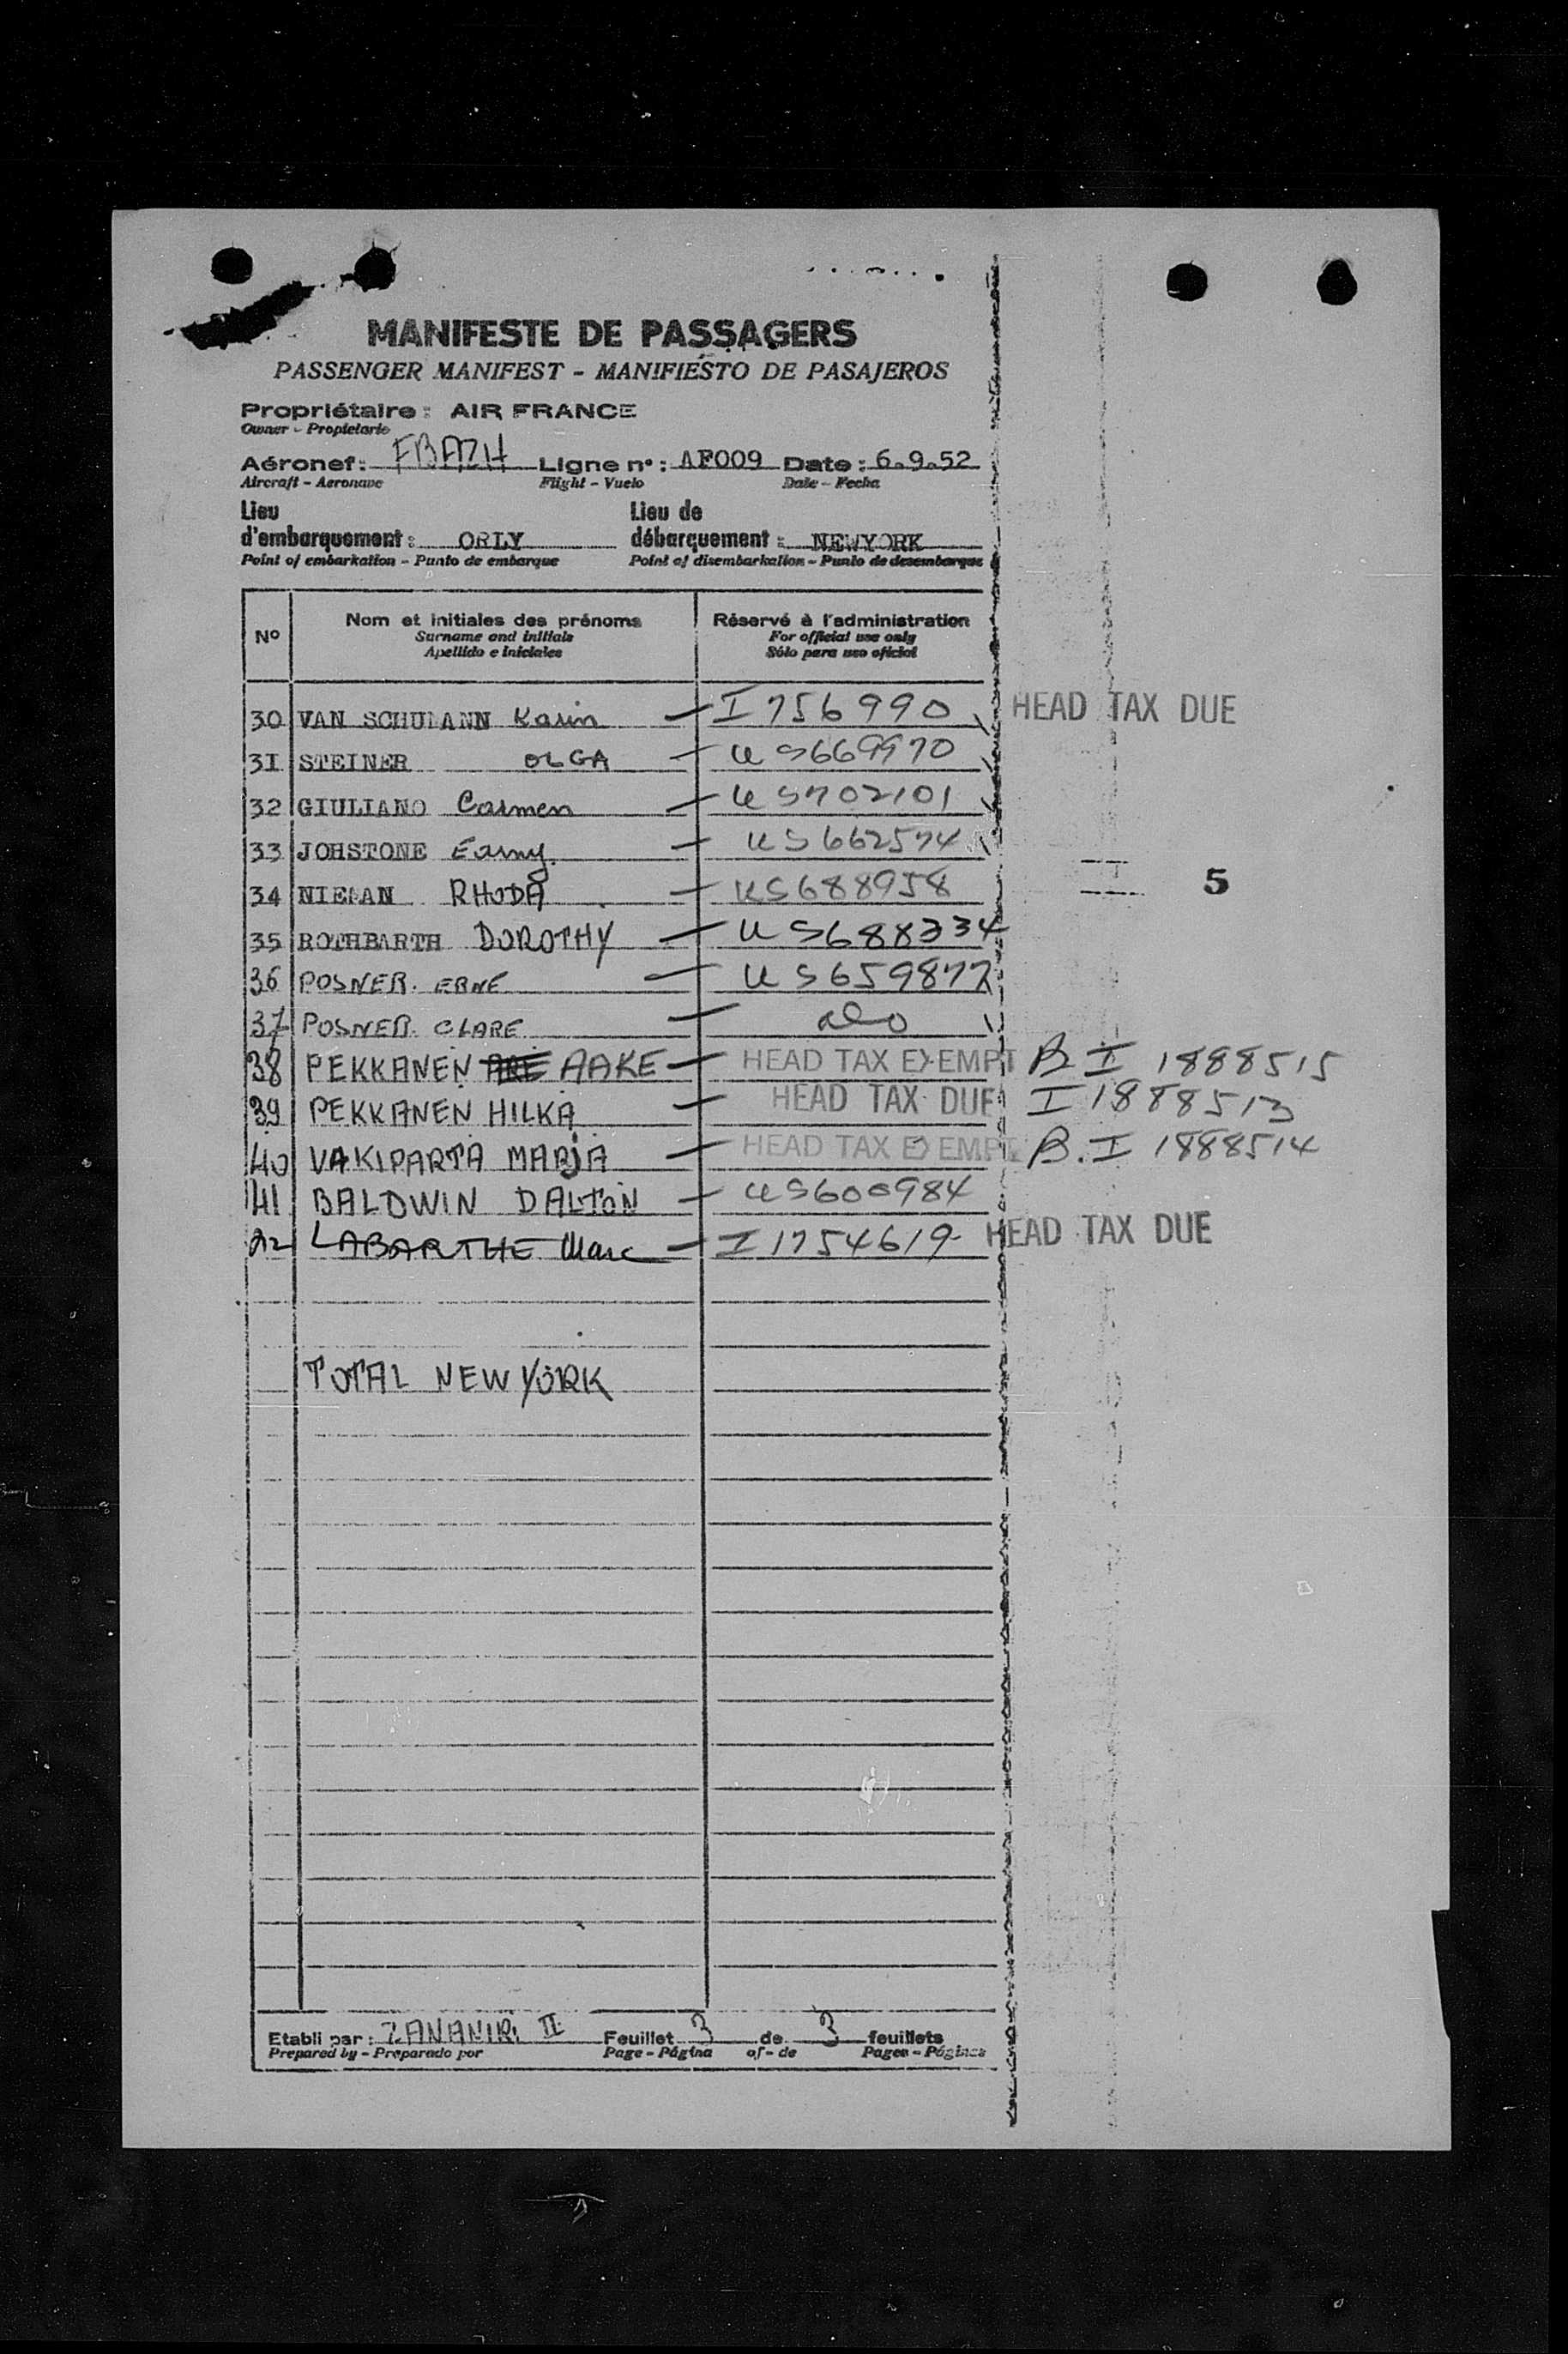 MANIFESTE DE PASSAGERS
PASSENGER MANIFEST - MANIFIESTO DE PASAJEROS
Propriétaire : AIR FRANCE
Owner - Propietario
Aéronef : FBAZH Ligne n° : AF009 Date : 6.9.52
Aircraft - Aeronave Flight - Vuelo Date - Fecha
Lieu d'embarquement : ORLY Lieu de débarquement : NEWYORK
Point of embarkation - Punto de embarque Point of disembarkation - Punto de desembarque
N° Nom et initiales des prénoms Réservé à l'administration
Surname and initials For official use only
Apellido e iniciales Sólo para uso oficial
30 VAN SCHUMANN Karin — I756990 HEAD TAX DUE
31 STEINER OLGA — US669970
32 GIULIANO Carmen — US702101
33 JOHSTONE — US662574
34 NIEMAN RHODA — US688958
5
35 ROTHBARTH DOROTHY — US688334
36 POSNER. ERNE — US659877
37 POSNER. CLARE — do
38 PEKKANEN ARE AAKE — HEAD TAX EXEMPT B I 1888515
39 PEKKANEN HILKA — HEAD TAX DUE I 1888513
40 VAKIPARTA MARJA — HEAD TAX EXEMPT B. I 1888514
41 BALDWIN DALTON — US600984
42 LABARTHE Marc — I1754619 HEAD TAX DUE
TOTAL NEW YORK
Etabli par : ZANANIRI II Feuillet 3 de 3 feuillets
Prepared by - Preparado por Page - Página of - de Pages - Páginas